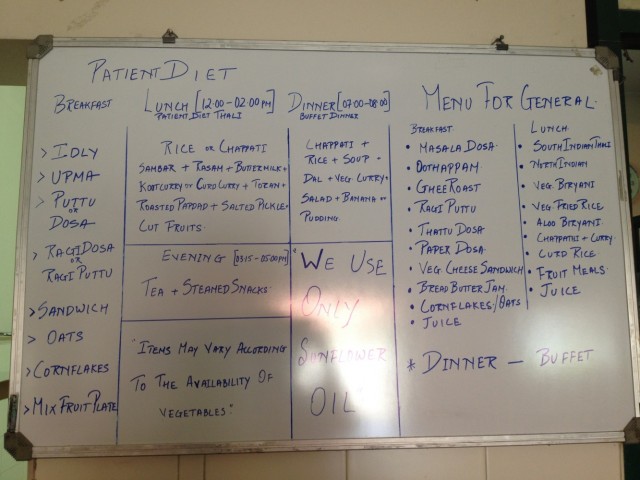 PATIENT DIET
BREAKFAST
> IDLY
> UPMA
> PUTTU
OR
DOSA
> RAGI DOSA
OR
RAGI PUTTU
> SANDWICH
> OATS
> CORNFLAKES
> MIX FRUIT PLATE
LUNCH [12:00 - 02:00 PM]
PATIENT DIET THALI
RICE OR CHAPPATI
SAMBAR + RASAM + BUTTERMILK +
KOOTCURRY OR CURD CURRY + TORAN +
ROASTED PAPDAD + SALTED PICKLE +
CUT FRUITS
EVENING [03:15 - 05:00 PM]
TEA + STEAMED SNACKS
"ITEMS MAY VARY ACCORDING
TO THE AVAILABILITY OF
VEGETABLES"
DINNER [07:00 - 08:00]
BUFFET DINNER
CHAPPATI +
RICE + SOUP +
DAL + VEG CURRY +
SALAD + BANANA OR
PUDDING
"WE USE
ONLY
SUNFLOWER
OIL"
MENU FOR GENERAL
BREAKFAST
• MASALA DOSA
• OOTHAPPAM
• GHEE ROAST
• RAGI PUTTU
• THATTU DOSA
• PAPER DOSA
• VEG CHEESE SANDWICH
• BREAD BUTTER JAM
• CORNFLAKES/OATS
• JUICE
LUNCH
• SOUTH INDIAN THALI
• NORTH INDIAN
• VEG BIRYANI
• VEG FRIED RICE
• ALOO BIRYANI
• CHAPPATHI + CURRY
• CURD RICE
• FRUIT MEALS
• JUICE
* DINNER — BUFFET